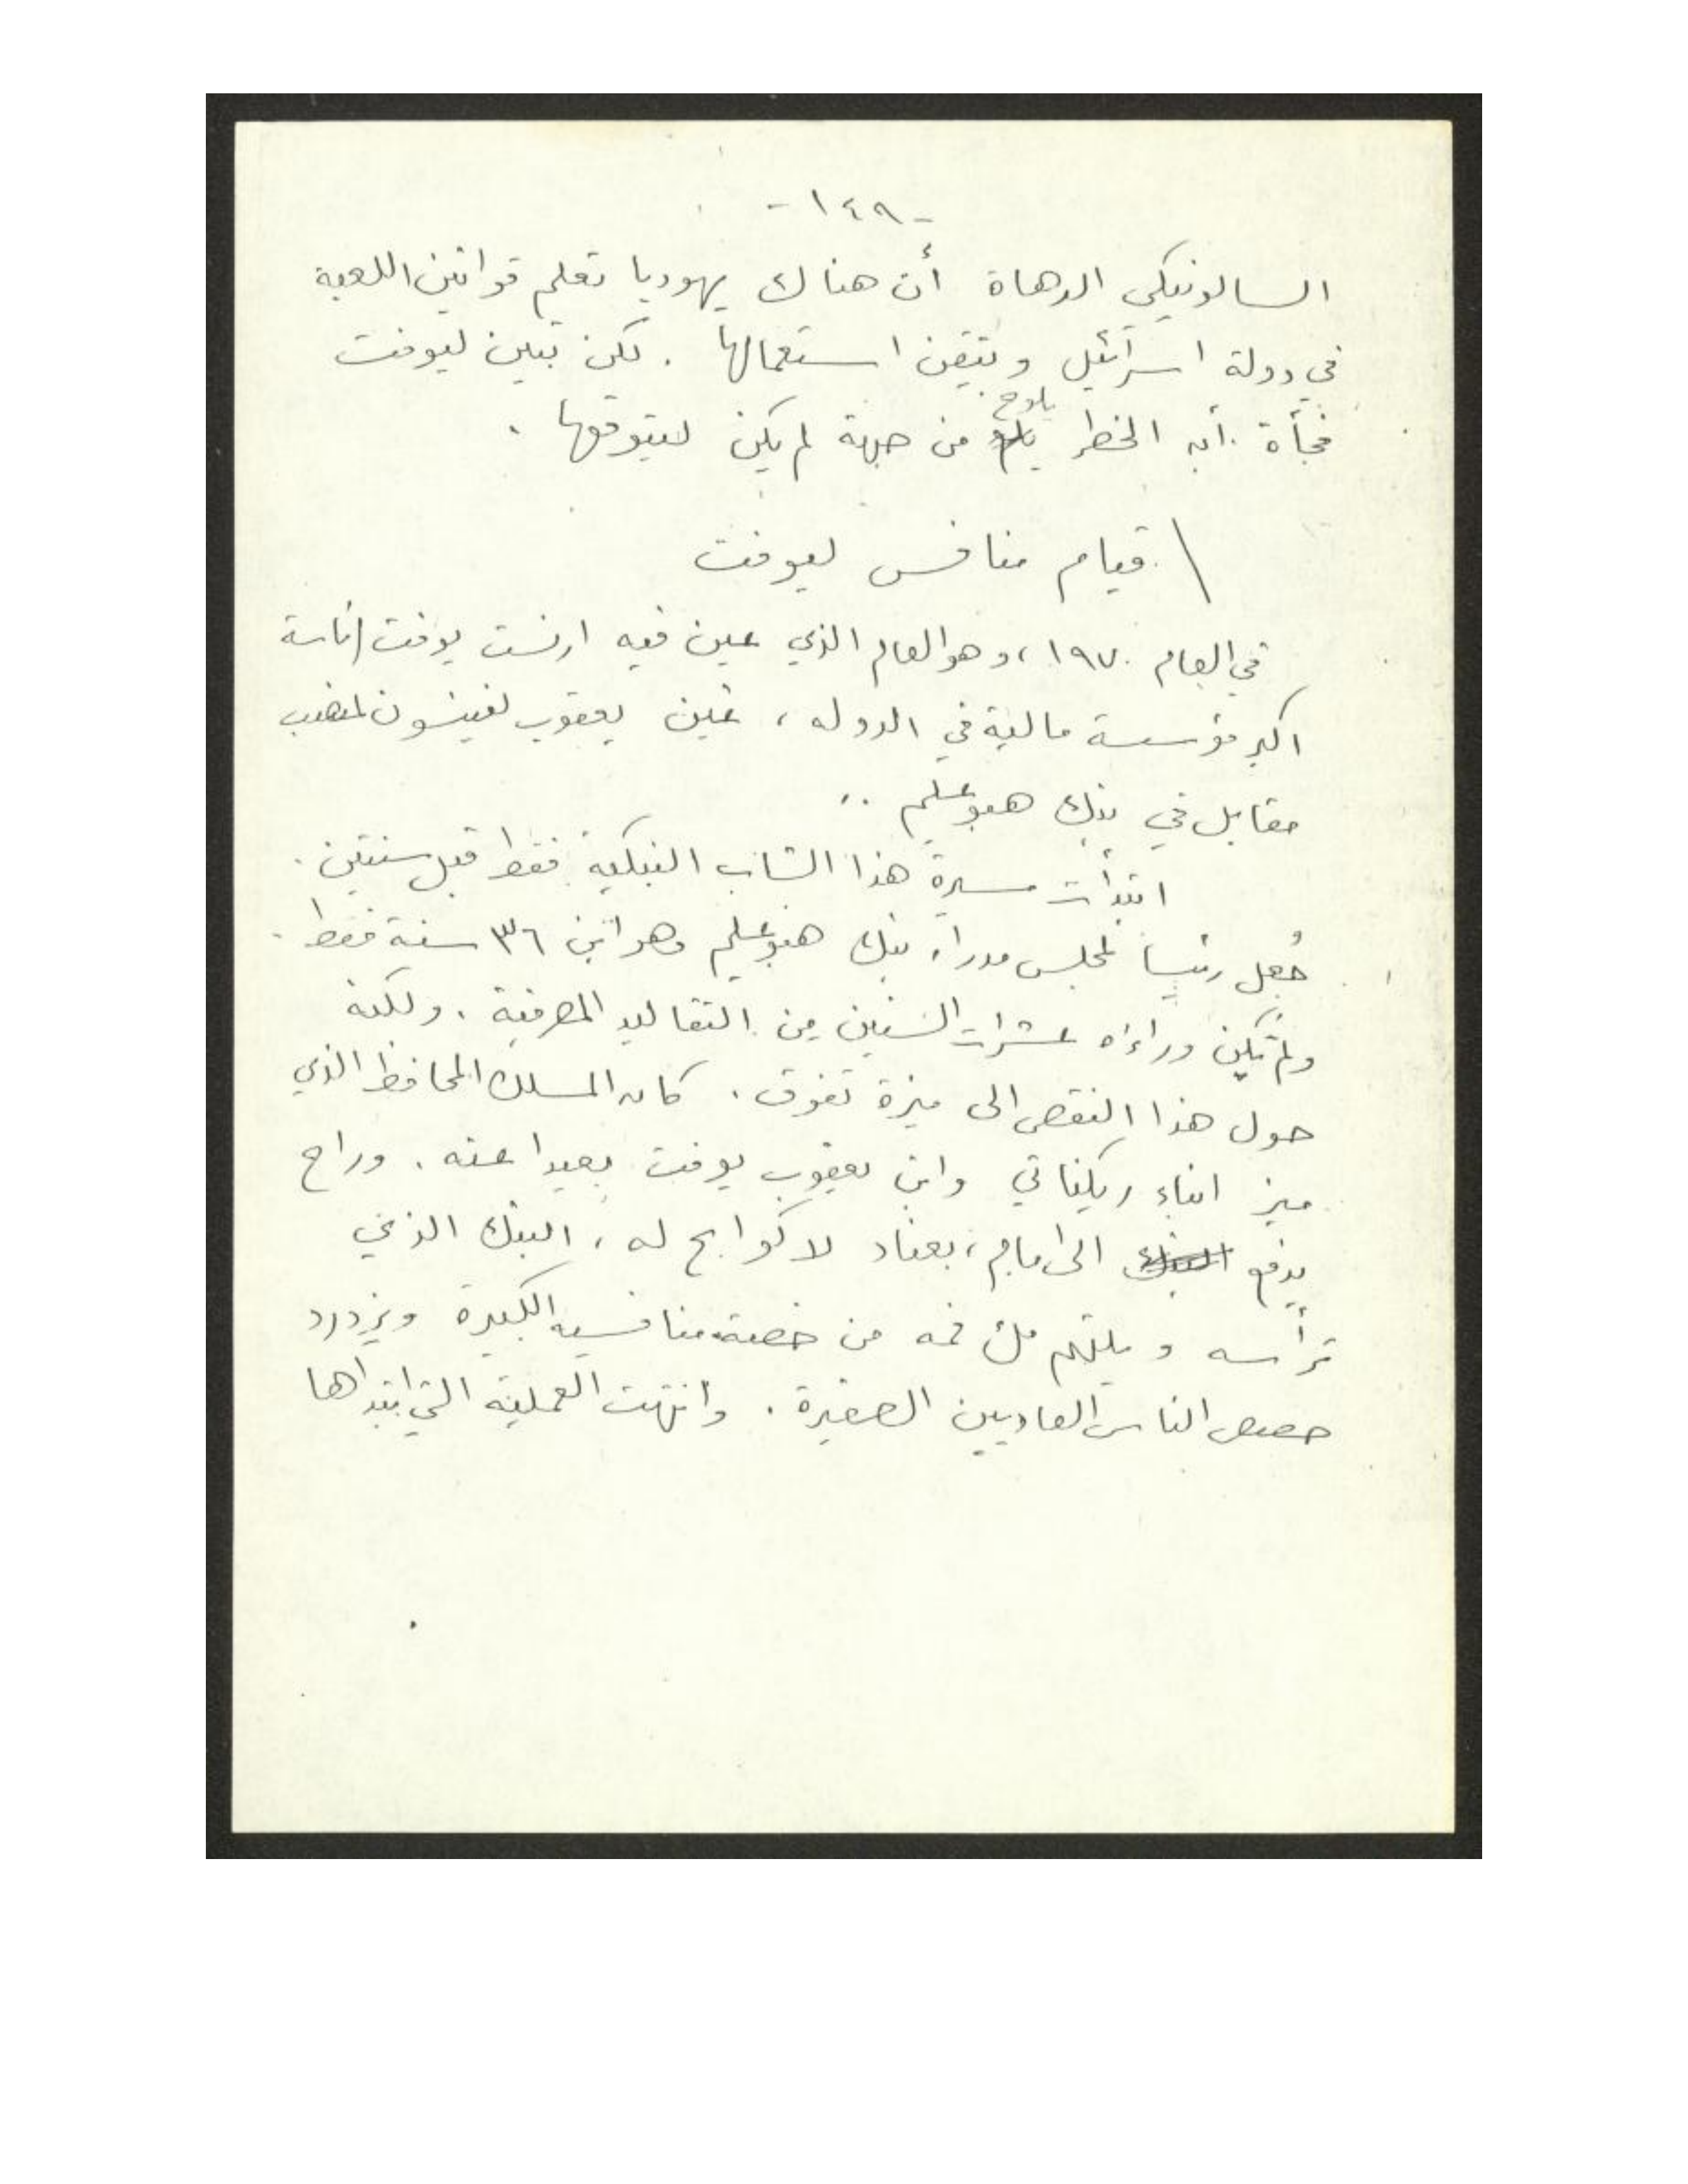 -١٤٩-
السالونيكي الدهاة أن هناك يهوديا تعلم قوانين اللعبة
في دولة اسرائيل ويتقن استعمالها . لكن تبين ليوفت
فجأة أن الخطر يلوح من جهة لم يكن ليتوقعها .
قيام منافس ليوفت
في العام ١٩٧٠، وهو العام الذي عين فيه ارنست يوفت لرئاسة
اكبر مؤسسة مالية في الدوله ، عُين يعقوب لفينسون لمنصب
مقابل في بنك هبوعليم ..
ابتدأت مسيرة هذا الشاب البنكية فقط قبل سنتين .
جُعل رئيسا لمجلس مدراء بنك هبوعليم وهو ابن ٣٦ سنة فقط .
ولم تكن وراءه عشرات السنين من التقاليد المصرفية . ولكنه
حول هذا النقص الى ميزة تفوق . كان المسلك المحافظ الذي
ميز ابناء ريكناتي وابن يعقوب يوفت بعيدا عنه . وراح
يدفع البنك الى امام ، بعناد لا كوابح له ، البنك الذي
ترأسه ويلتهم ملء فمه من حصة منافسيه الكبيرة ويزدرد
حصص الناس العاديين الصغيرة . وانتهت العملية التي ابتدأها